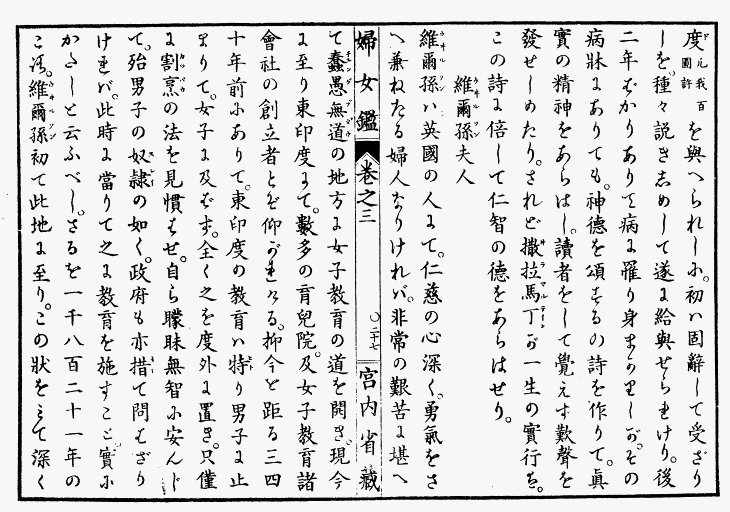 度ル我百圓許を與へられしに。初ハ固辭して受ざり
しを。種々說きすゝめして遂に給與せられけり。後
二年ばかりありて病に罹り身まかりしが。その
病牀にありても。神德を頌するの詩を作りて。眞
實の精神をあらはし。讀者をして覺えず歎聲を
發せしめたり。されど撒拉馬丁が一生の實行を。
この詩に倍して仁智の德をあらはせり。
維爾孫夫人
維爾孫ハ英國の人にて。仁慈の心深く。勇氣をさ
へ兼ねたる婦人なりけれバ。非常の艱苦に堪へ
婦女鑑 卷之三 〇二十七 宮内省藏
て蠢愚無道の地方に女子敎育の道を開き。現今
に至り東印度にて。數多の育兒院。及女子敎育諸
會社の創立者とを仰がれける。抑今と距る三四
十年前にありて。東印度の敎育ハ特り男子に止
まりて。女子に及ばず。全く之を度外に置き。只僅
に割烹の法を見慣はせ。自ら矇昧無智に安んじ
て。殆男子の奴隷の如く。政府も亦措て問はざり
けれバ。此時に當りて之に敎育を施すこと實に
かたしと云ふべし。さるを一千八百二十一年の
ころ。維爾孫初て此地に至り。この狀をみて深く